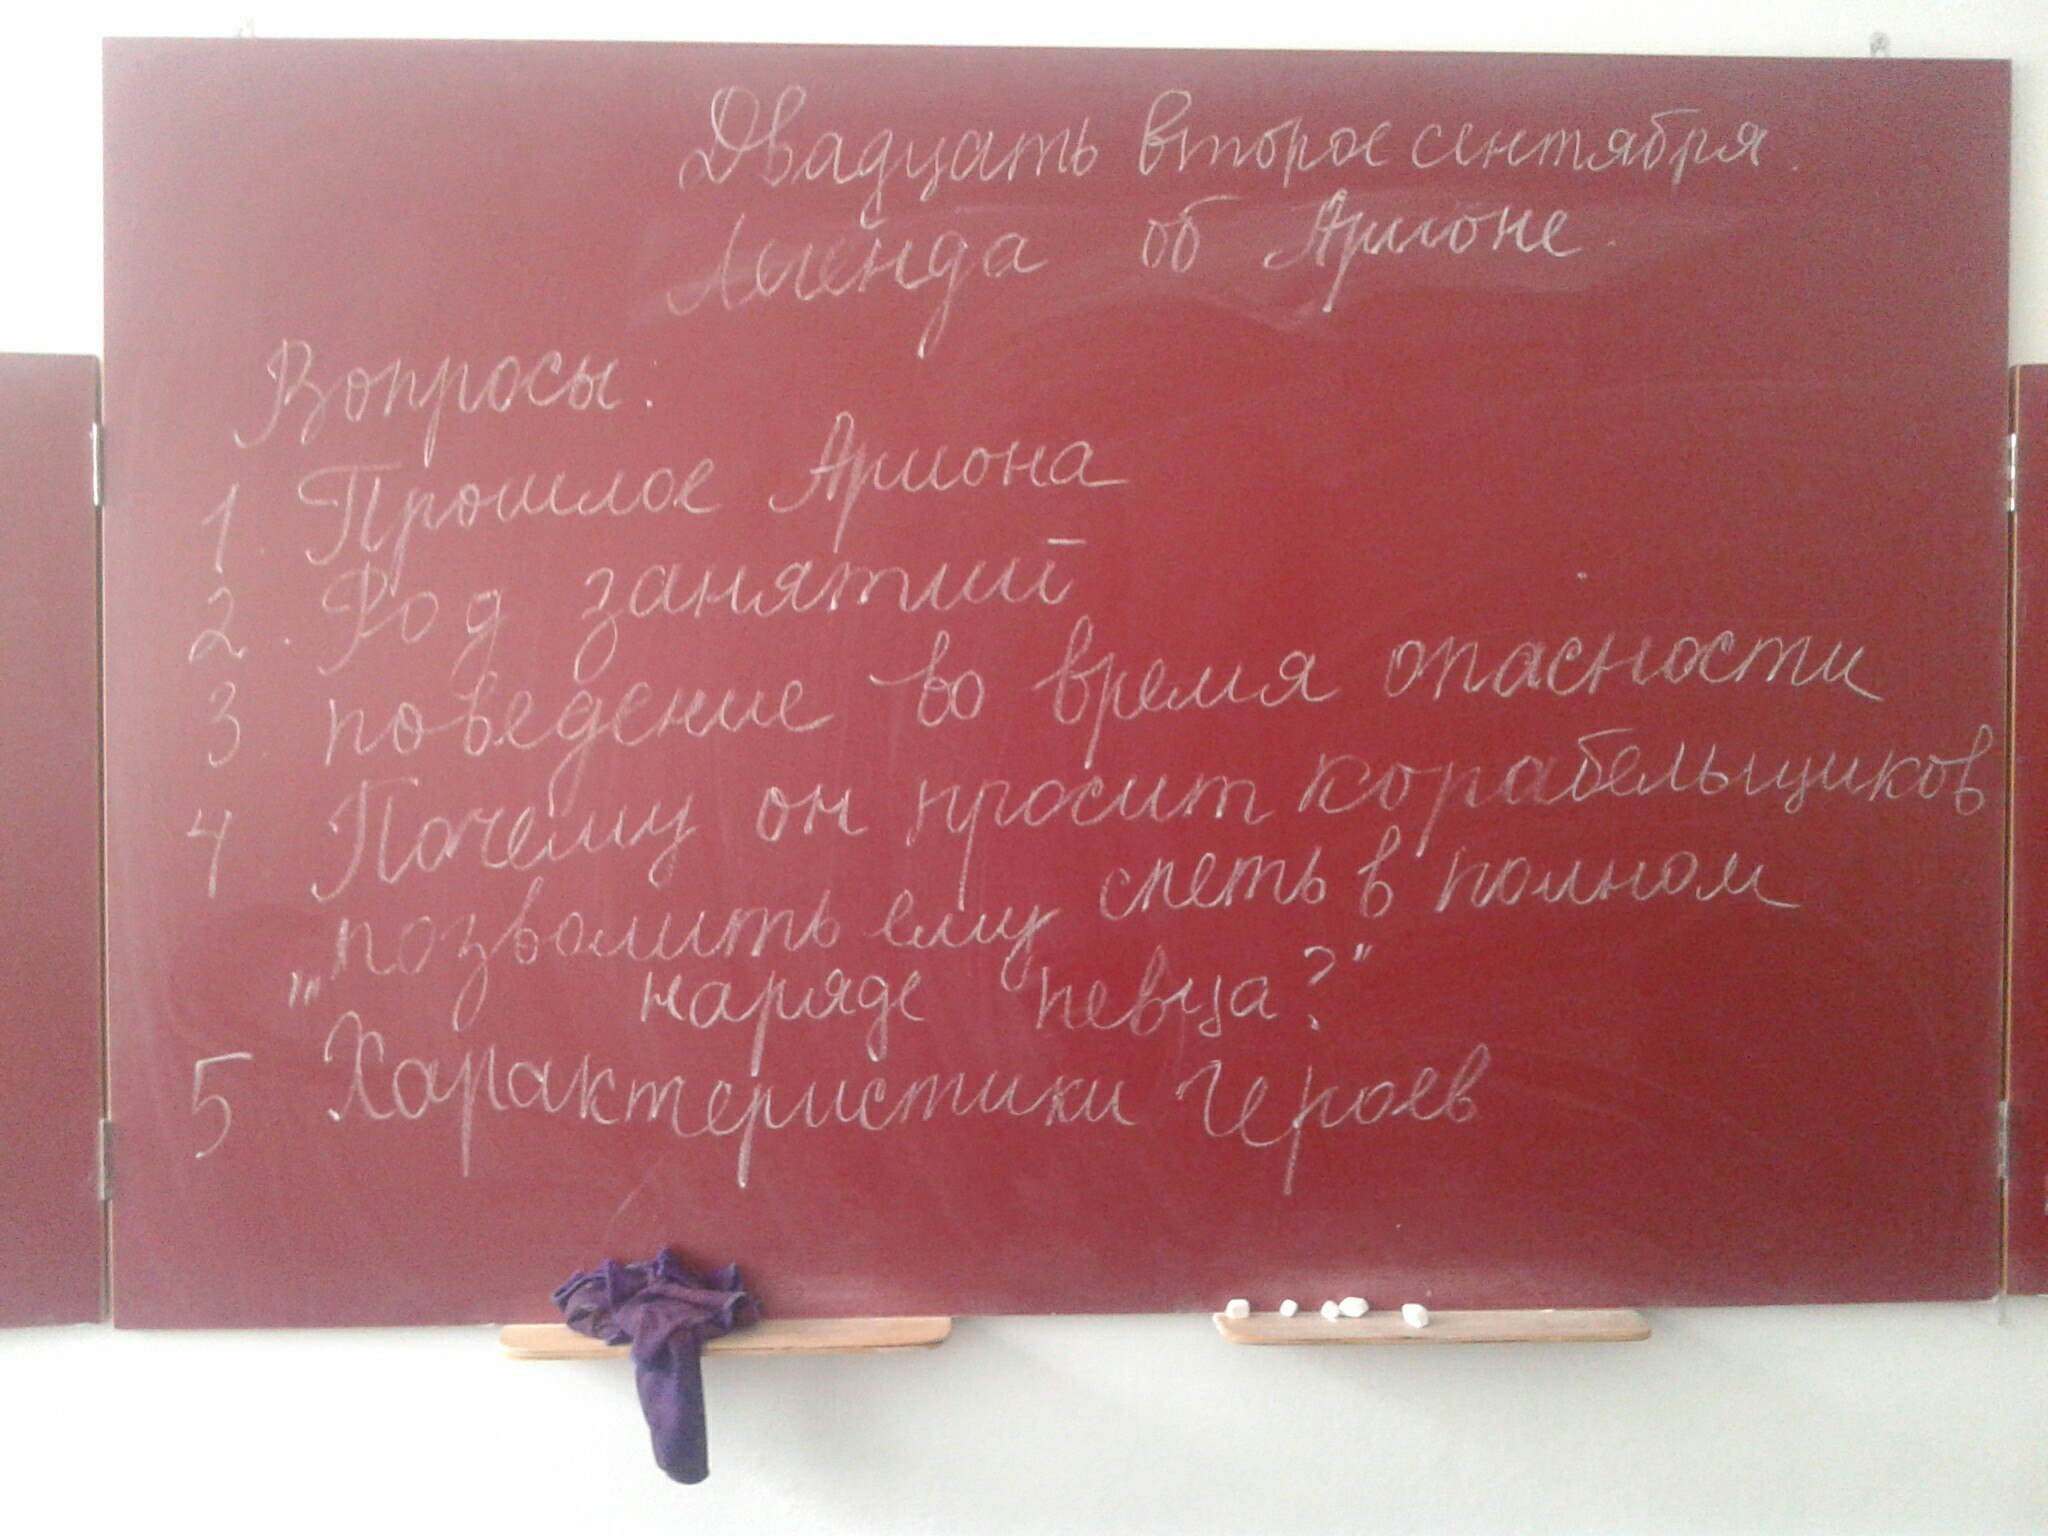 Двадцать второе сентября.
Легенда об Арионе.
Вопросы:
1. Прошлое Ариона
2. Род занятий
3. поведение во время опасности
4 Почему он просит корабельщиков
„позволить ему спеть в полном
наряде певца?"
5 Характеристики героев